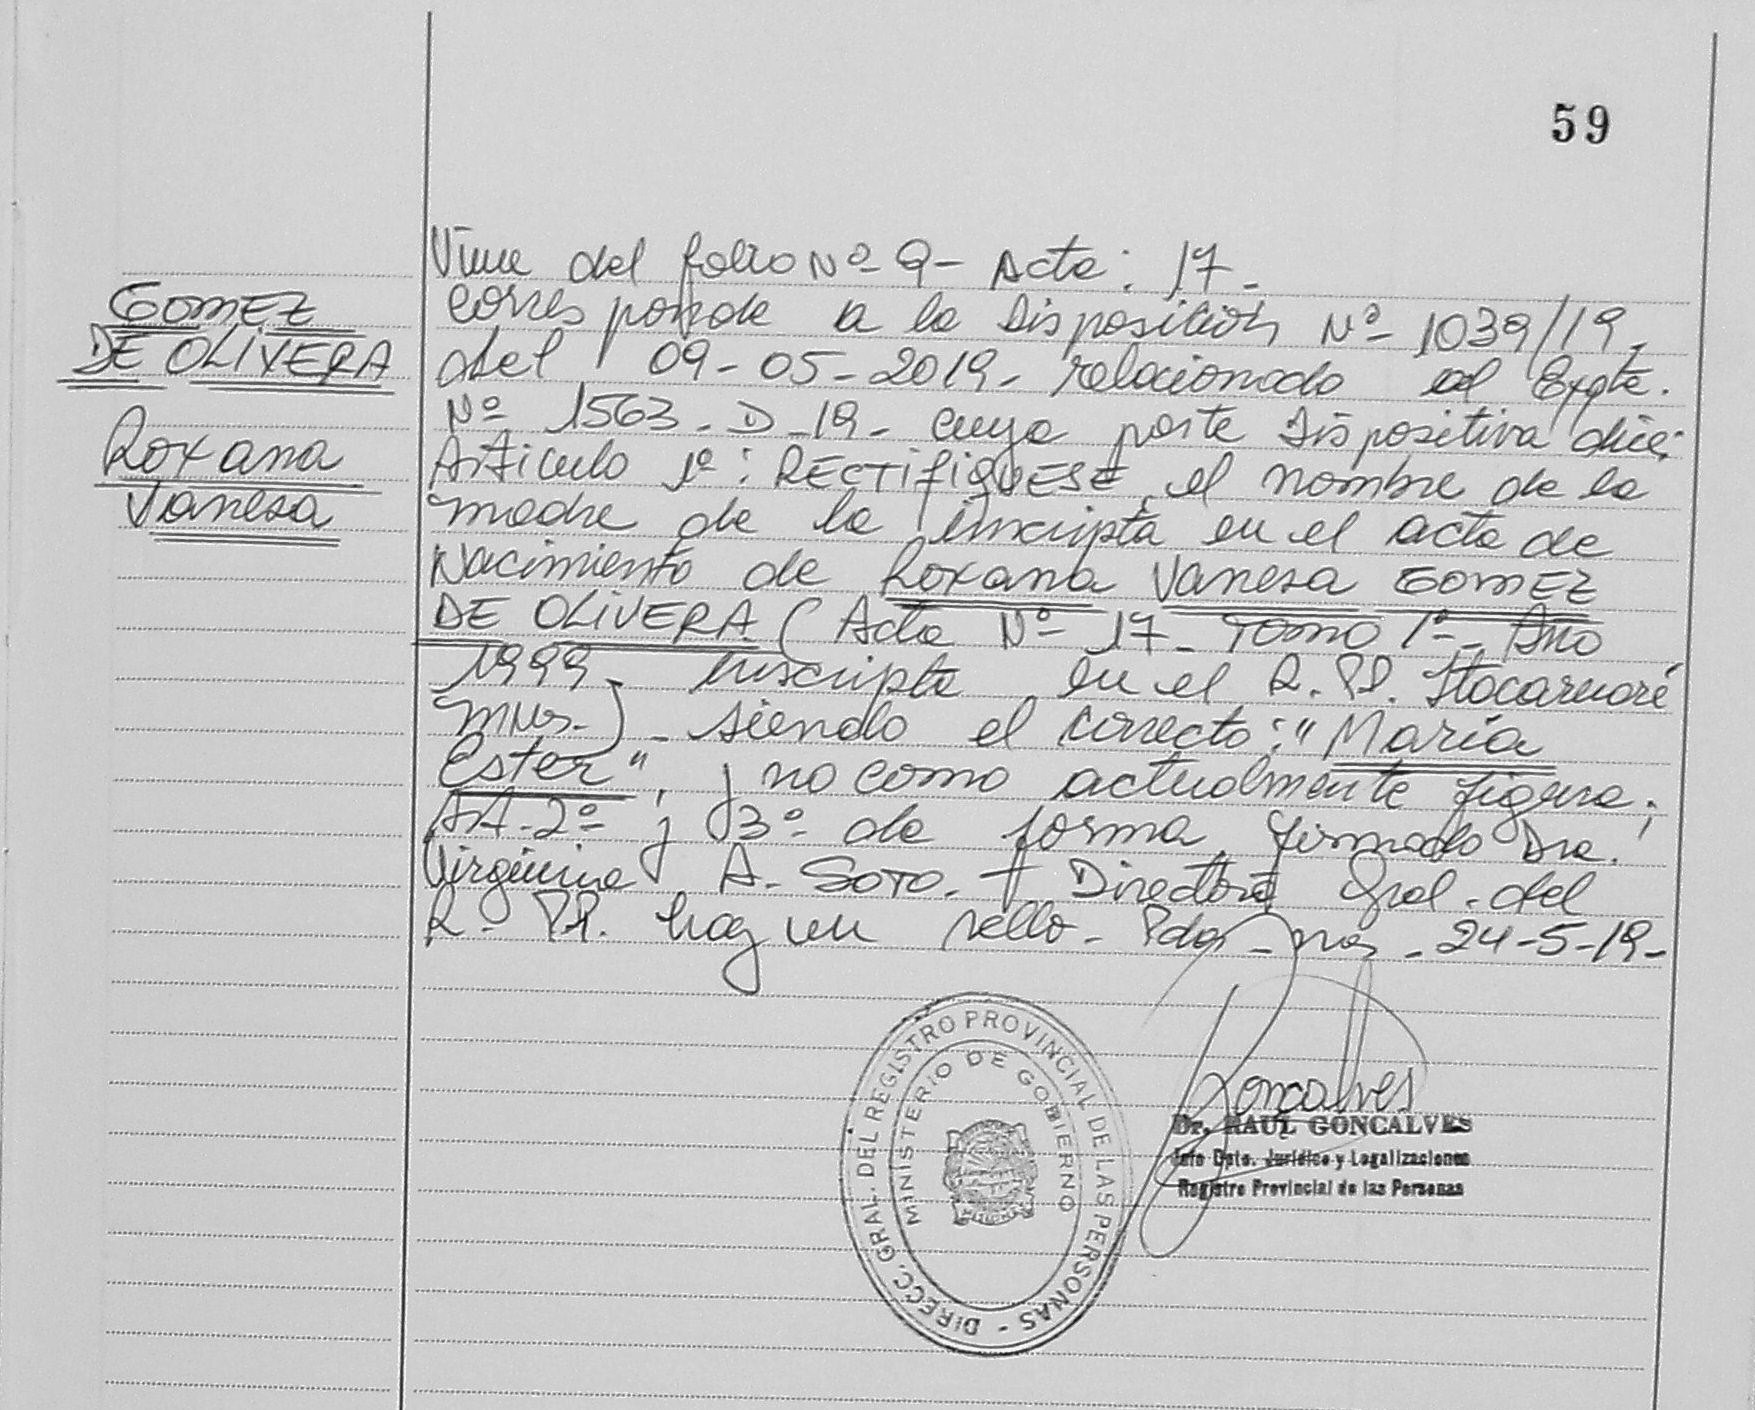 59
GOMEZ
DE OLIVERA
Roxana
Vanesa
Viene del folio Nº 9- Acta: 17-
Corresponde a la Disposición Nº 1039/19-
del 09-05-2019- relacionado al Expte.
Nº 1563-D-19- cuya parte Dispositiva dice:
Artículo 1º: RECTIFIQUESE, el nombre de la
madre de la inscripta en el acta de
Nacimiento de Roxana Vanesa GOMEZ
DE OLIVERA (Acta Nº 17- Tomo 1º- Año
1999- Inscripta en el R.PP. Itacaruaré
Mnes.)- siendo el correcto: "María
Ester", y no como actualmente figura;
AA-2º y 3º de forma, firmado Dra.
Virginia A. SOTO.- Directora Gral. del
R. PP. hay un sello- Pdas- Mnes- 24-5-19-
Goncalves
Dr. RAUL GONCALVES
Jefe Dpto. Jurídico y Legalizaciones
Registro Provincial de las Personas
DIRECC. GRAL. DEL REGISTRO PROVINCIAL DE LAS PERSONAS -
MINISTERIO DE GOBIERNO